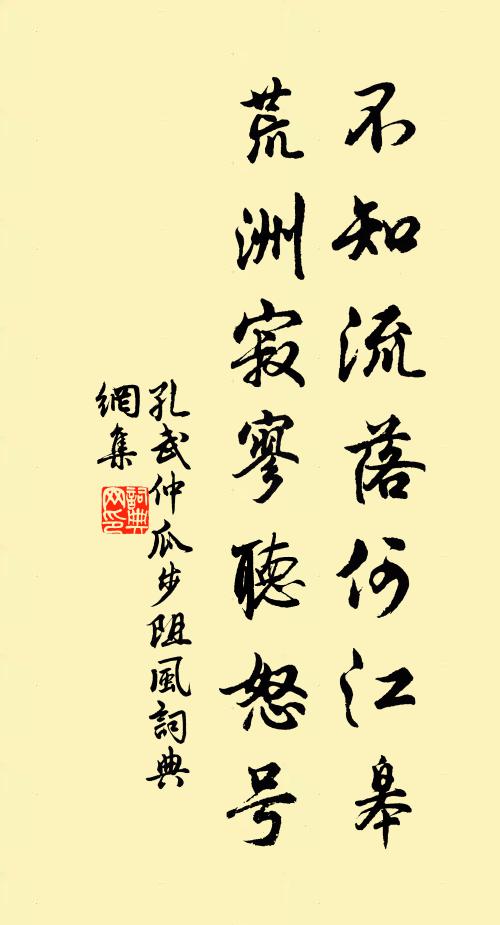 不知流落何江皋
荒洲寂寥聽怒号
孔武仲瓜步阻風詞典
網集
詞典
网印